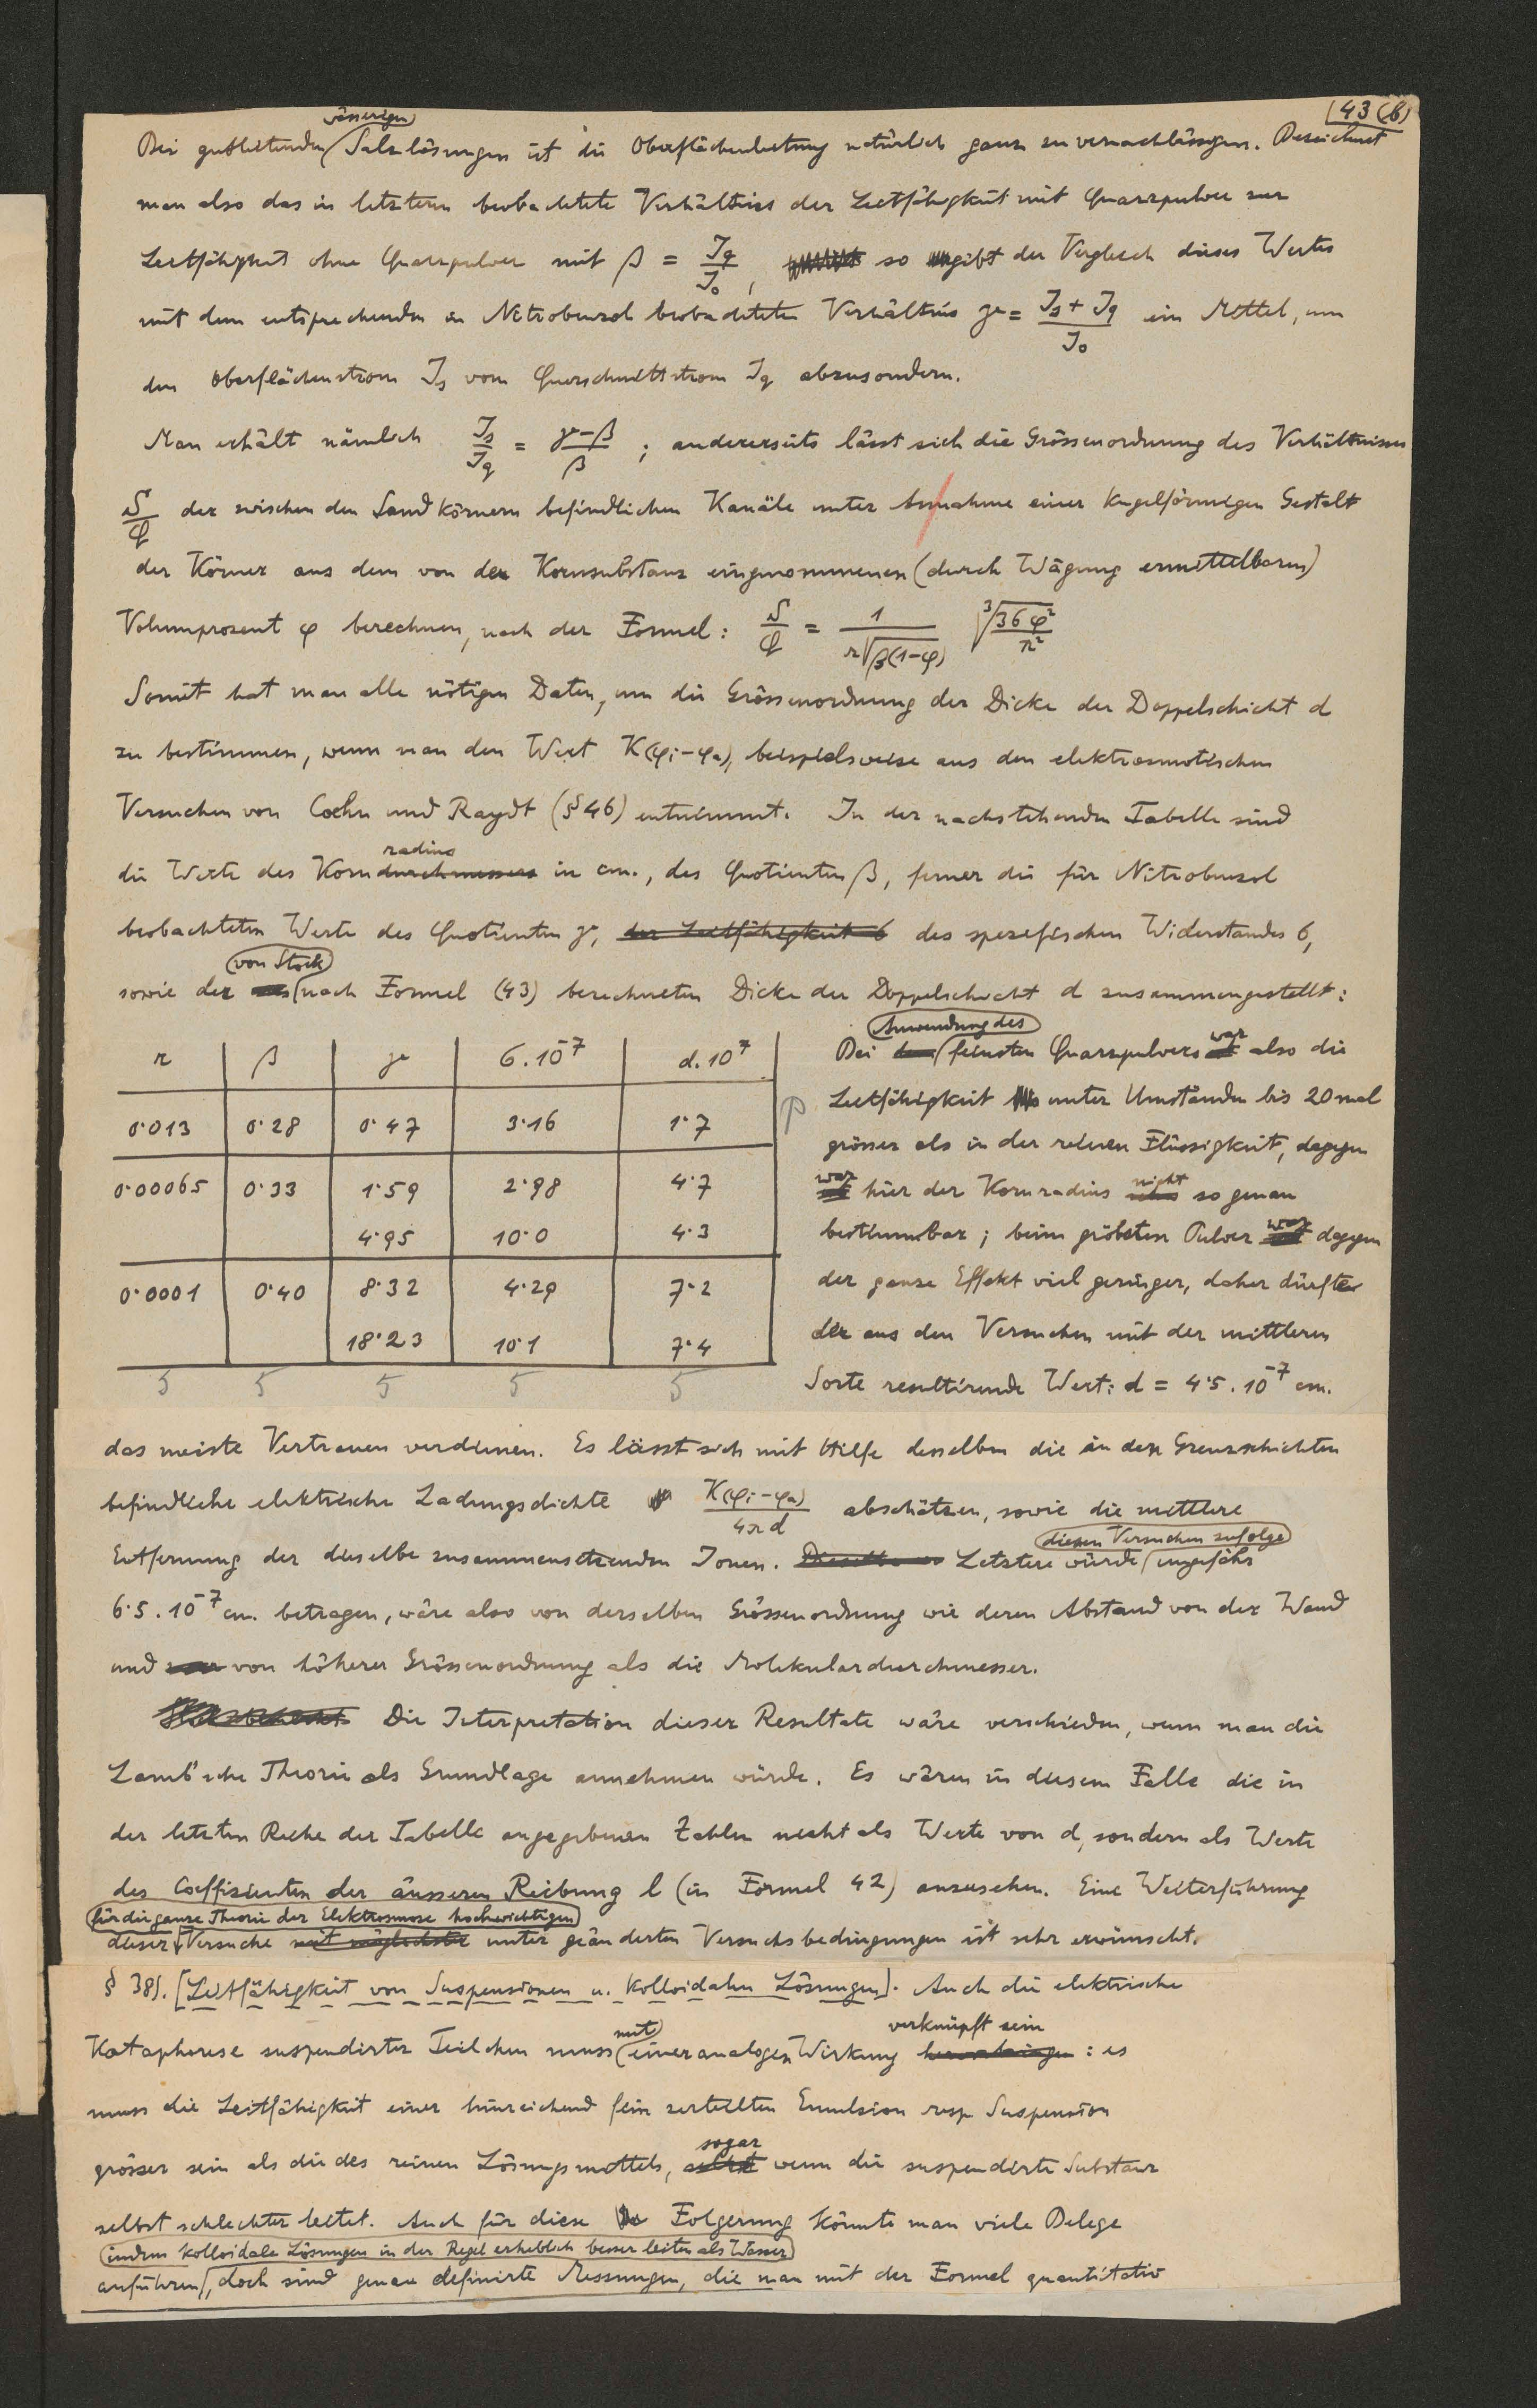 43(b)
Bei gutleitenden wässerigen Salzlösungen ist die Oberflächenleitung natürlich ganz zu vernachlässigen. Bezeichnet
man also das in letzteren beobachtete Verhältniss der Leitfähigkeit mit Quarzpulver zur
Leitfähigkeit ohne Quarzpulver mit β = Jq/J₀, so gibt der Vergleich dieses Wertes
mit dem entsprechenden in Nitrobenzol beobachteten Verhältnis γ = (Js + Jq)/J₀ ein Mittel, um
den Oberflächenstrom Js vom Querschnittstrom Jq abzusondern.
Man erhält nämlich Js/Jq = (γ−β)/β ; andererseits lässt sich die Grössenordnung des Verhältnisses
S/Q der zwischen den Sandkörnern befindlichen Kanäle unter Annahme einer kugelförmigen Gestalt
der Körner aus dem von der Kornsubstanz eingenommenen (durch Wägung ermittelbaren)
Volumprozent φ berechnen, nach der Formel: S/Q = 1/(r√(β(1−φ))) ∛(36φ²/π²)
Somit hat man alle nötigen Daten, um die Grössenordnung der Dicke der Doppelschicht d
zu bestimmen, wenn man den Wert K(φi−φa), beispielsweise aus den elektrosmotischen
Versuchen von Coehn und Raydt (§ 46) entnimmt. In der nachstehenden Tabelle sind
die Werte des Korndurchmessers radius in cm., des Quotienten β, ferner die für Nitrobenzol
beobachteten Werte des Quotienten γ, der Leitfähigkeit σ des spezifischen Widerstandes σ,
sowie der von Stock nach Formel (43) berechneten Dicke der Doppelschicht d zusammengestellt:
r | β | γ | σ.10⁻⁷ | d.10⁷
0·013 | 0·28 | 0·47 | 3·16 | 1·7
0·00065 | 0·33 | 1·59 | 2·98 | 4·7
4·95 | 10·0 | 4·3
0·0001 | 0·40 | 8·32 | 4·29 | 7·2
18·23 | 10·1 | 7·4
5 5 5 5 5
Bei Anwendung des feinsten Quarzpulvers war also die
Leitfähigkeit unter Umständen bis 20 mal
grösser als in der reinen Flüssigkeit, dagegen
war hier der Kornradius nicht so genau
bestimmbar; beim gröbsten Pulver war dagegen
der ganze Effekt viel geringer, daher dürfte
der aus den Versuchen mit der mittleren
Sorte resultirende Wert: d = 4·5.10⁻⁷ cm.
das meiste Vertrauen verdienen. Es lässt sich mit Hilfe desselben die in den Grenzschichten
befindliche elektrische Ladungsdichte K(φi−φa)/4πd abschätzen, sowie die mittlere
Entfernung der dieselbe zusammensetzenden Ionen. Letztere würde diesen Versuchen zufolge ungefähr
6·5.10⁻⁷ cm. betragen, wäre also von derselben Grössenordnung wie deren Abstand von der Wand
und von höherer Grössenordnung als die Molekulardurchmesser.
Die Interpretation dieser Resultate wäre verschieden, wenn man die
Lamb'sche Theorie als Grundlage annehmen würde. Es wären in diesem Falle die in
der letzten Reihe der Tabelle angegebenen Zahlen nicht als Werte von d, sondern als Werte
des Coeffizienten der äusseren Reibung l (in Formel 42) anzusehen. Eine Weiterführung
für die ganze Theorie der Elektrosmose hochwichtigen
dieser Versuche mit möglichster unter geänderten Versuchsbedingungen ist sehr erwünscht.
§ 38). [Leitfähigkeit von Suspensionen u. kolloidalen Lösungen]. Auch die elektrische
Kataphorese suspendirter Teilchen muss mit einer analogen Wirkung hervorbringen verknüpft sein : es
muss die Leitfähigkeit einer hinreichend fein zerteilten Emulsion resp. Suspension
grösser sein als die des reinen Lösungsmittels, selbst sogar wenn die suspendirte Substanz
selbst schlechter leitet. Auch für diese Folgerung könnte man viele Belege
indem kolloidale Lösungen in der Regel erheblich besser leiten als Wasser
anführen, doch sind genau definirte Messungen, die man mit der Formel quantitativ